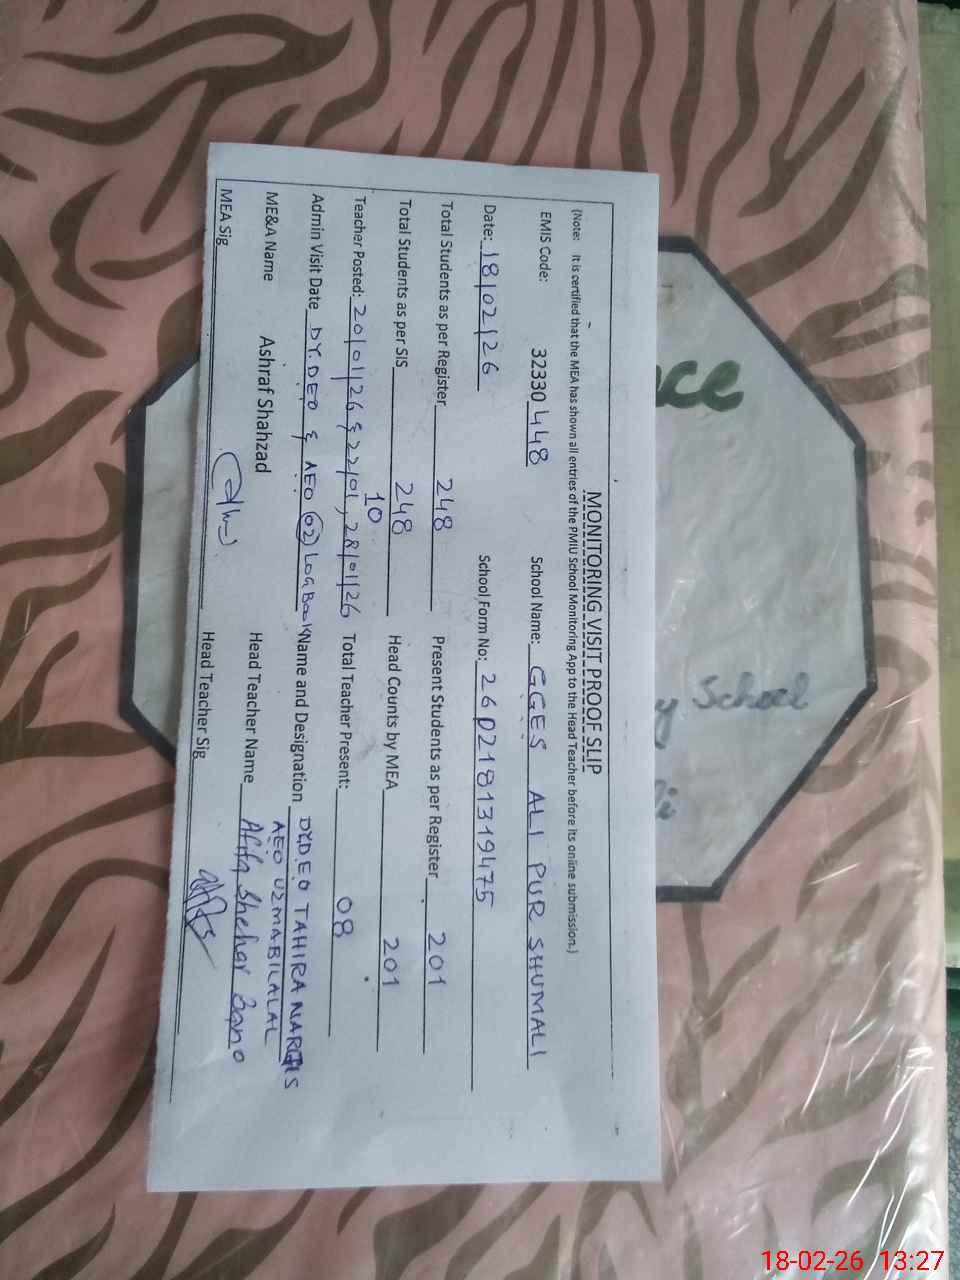 MONITORING VISIT PROOF SLIP
(Note: It is certified that the MEA has shown all entries of the PMIU School Monitoring App to the Head Teacher before its online submission.)
EMIS Code: 32330 448 School Name: GGES ALI PUR SHUMALI
Date: 18/02/26 School Form No: 2602181319475
Total Students as per Register 248 Present Students as per Register 201
Total Students as per SIS 248 Head Counts by MEA 201
Teacher Posted: 10 Total Teacher Present: 08
20/01/26 & 22/01, 28/01/26
Admin Visit Date DY.DEO & AEO (02) LOGBook Name and Designation DY.DEO TAHIRA NARGIS
AEO UZMABILALAL
ME&A Name Ashraf Shahzad Head Teacher Name Afifa Shehar Bano
MEA Sig Head Teacher Sig
ce
y School
18-02-26 13:27